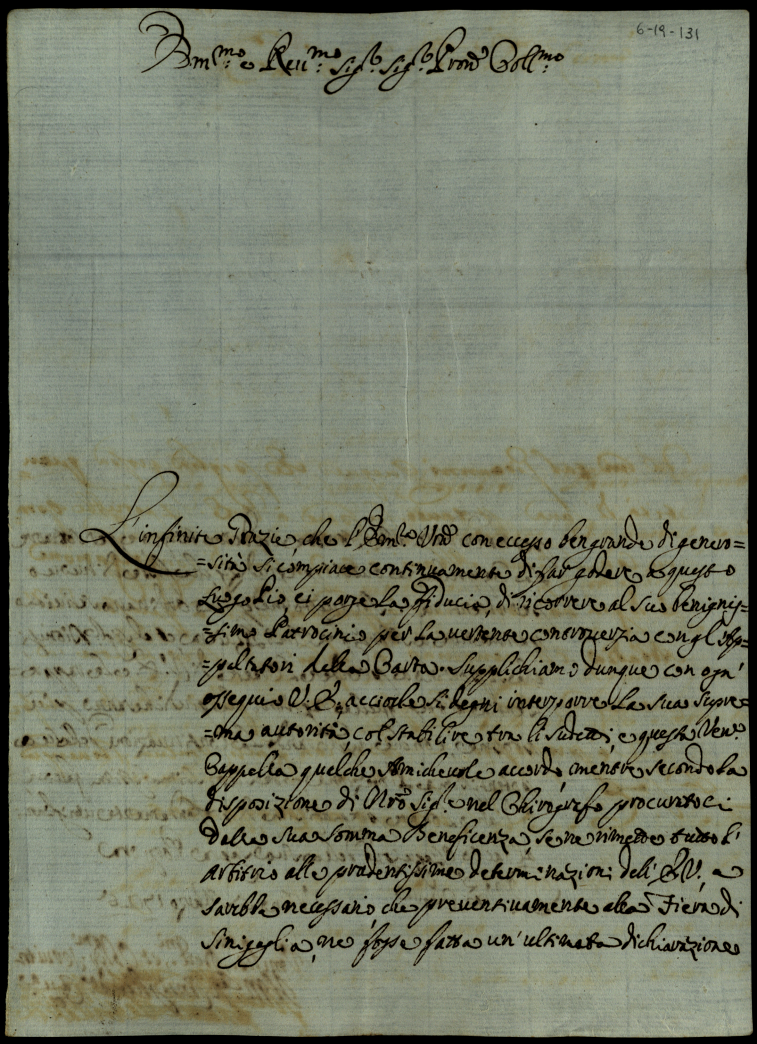 6-19-131
Em.mo e Reu.mo Sig.r Sig.r Pron.e Coll.mo
L'infinite Grazie, che l'Em.za Vr̃a con eccesso ben grande di genero=
=sità si compiace continuamente di far godere a questo
Luogo Pio, ci porge la fiducia, di ricorrere al suo benignis=
=simo Patrocinio per la vertente controuerzia con gl'Ap=
=paltatori della Carta. Supplichiamo dunque con ogn'
ossequio V. E., acciò che si degni interporre la sua supre=
=ma autorità, col stabilire tra li sudetti, e questa Ven.e
Cappella qualche Amicheuole accordo, mentre secondo la
disposizione di Nr̃o Sig.re nel Chirografo procuratoci
dalla sua somma Beneficenza, se ne rimette tutto l'
arbitrio alle prudentissime determinazioni dell' E. V. e
sarebbe necessario, che preventivamente alla Fiera di
Sinigaglia, ne fosse fatta un' ultimata dichiarazione